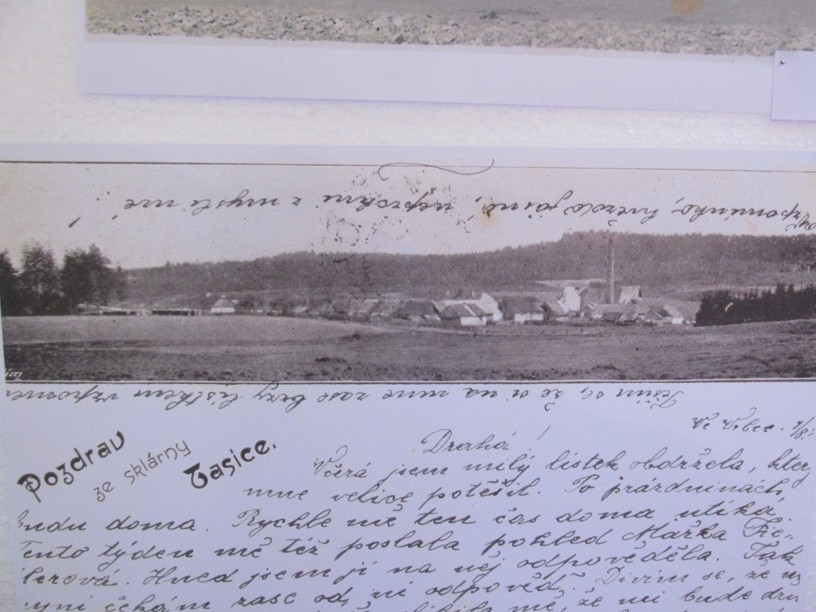 vzpomínko, hvězdo jasná, neprchni z mysli mé!
Těším se, že si na mne zase brzy lístkem vzpomen
Ve Vrbce. 7/8.
Pozdrav
ze sklárny
Tasice.
Drahá!
Včera jsem milý lístek obdržela, kter
mne velice potěšil. Po prázdninách
budu doma. Rychle mě ten čas doma utíká.
Tento týden mě též poslala pohled Mářka Fie-
lerová. Hned jsem jí na něj odpověděla. Však
nyní čekám zase od ní odpověď. Divím se, že
mě, že mi bude